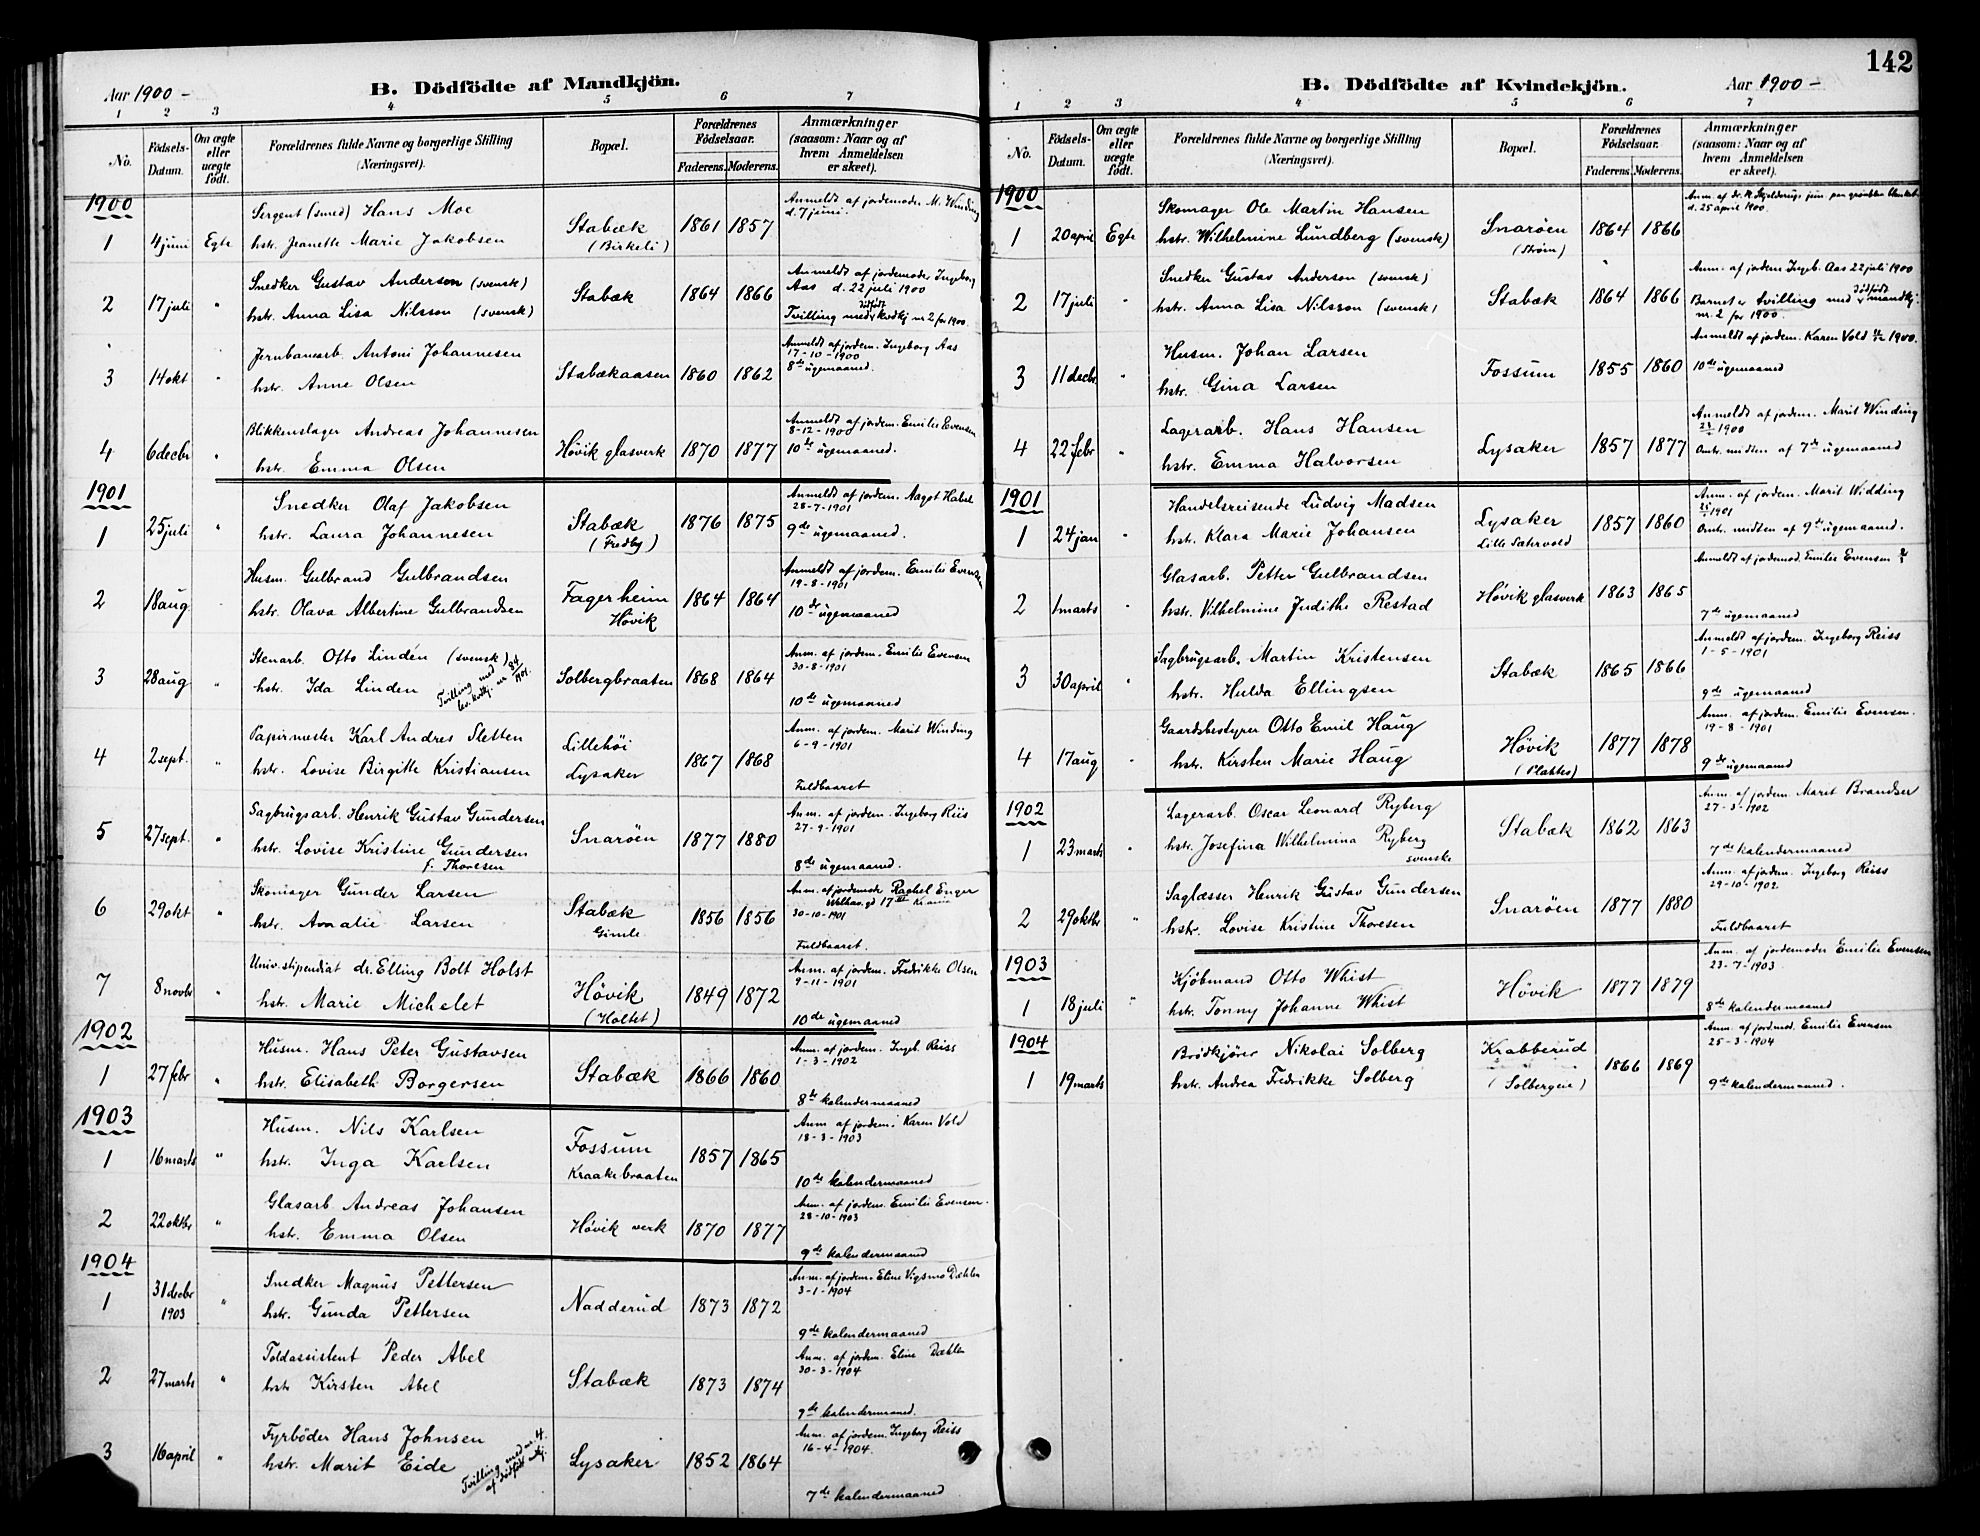 Aar 1900 -
B. Dödfödte af Mandkjön.
1 2 3 4 5 6 7
No.
Födsels-Datum.
Om ægte eller uægte födt.
Forældrenes fulde Navne og borgerlige Stilling (Næringsvei).
Bopæl.
Forældrenes Födselsaar.
Faderens. Moderens.
Anmærkninger (saasom: Naar og af hvem Anmeldelsen er skeet).
1900
Sergent (smed) Hans Moe
Anmeldt af jordemoder M. Winding
d. 7 juni.
1 4 juni Egte hstr. Jeanette Marie Jakobsen Stabæk (Birkeli) 1861 1857
Snedker Gustav Anderson (svensk)
Anmeldt af jordemoder Ingeborg
Aas d. 22 juli 1900
2 17 juli " hstr. Anna Lisa Nilsson (svensk) Stabæk 1864 1866
Tvilling med dødfødt kvdkj nr 2 for 1900.
Jernbanearb. Antoni Johannesen
Anmeldt af jordem. Ingeborg Aas
17-10-1900
3 14 okt " hstr. Anne Olsen Stabækaasen 1860 1862 8de ugemaaned.
Blikkenslager Andreas Johannesen
Anmeldt af jordem. Emilie Evensen
8-12-1900
4 6 decbr " hstr. Emma Olsen Høvik glasverk 1870 1877 10de ugemaaned.
1901
Snedker Olaf Jakobsen
Anmeldt af jordem. Aagot
28-7-1901
1 25 juli " hstr. Laura Johannesen Stabæk (Fredby) 1876 1875 9de ugemaaned.
Husm. Gulbrand Gulbrandsen
Anmeldt af jordem. Emilie Evensen
19-8-1901
2 18 aug " hstr. Olava Albertine Gulbrandsen Fagerheim Høvik 1864 1864 10de ugemaaned
Stenarb. Otto Lindén (svensk)
Anm. af jordem. Emilie Evensen
30-8-1901
3 28 aug " hstr. Ida Linden Tvilling med lev. kvkj. nr 84/1901. Solbergbraaten 1868 1864
10de ugemaaned
Papirmester Karl Andres Sletten
Anm. af jordem. Marit Winding
6-9-1901
4 2 sept. " hstr. Lovise Birgitte Kristiansen Lillehöi Lysaker 1867 1868
Fuldbaaret
Sagbrugsarb. Henrik Gustav Gundersen
Anm. af jordem. Ingeborg Riis
27-9-1901
5 27 sept. " hstr. Lovise Kristine Gundersen f. Thoresen Snarøen 1877 1880
8de ugemaaned.
Skomager Gunder Larsen
Anm. af jordemoder Rachel Enger
30-10-1901
6 29 okt " hstr. Amalie Larsen Stabæk Gimle 1856 1856
Fuldbaaret.
Univ. stipendiat dr. Elling Bolt Holst
Anm. af jordem. Fredrikke Olsen
9-11-1901
7 8 novbr " hstr. Marie Michelet Høvik (Holtet) 1849 1872
10de ugemaaned
1902
Husm. Hans Peter Gustavsen
Anm. af jordem. Ingeb. Reiss
1-3-1902
1 27 febr " hstr. Elisabeth Borgersen Stabæk 1866 1860
8de kalendermaaned
1903
Husm. Nils Karlsen
Anm af jordem. Karen Vold
18-3-1903
1 16 marts " hstr. Inga Karlsen Fossum Kraakebraaten 1857 1865
10de kalendermaaned
Glasarb. Andreas Johansen
Anm. af jordem. Emilie Evensen.
28-10-1903
2 22 oktbr " hstr. Emma Olsen Høvik verk 1870 1877
9de kalendermaaned
1904
Snedker Magnus Pettersen
Anm. af jordem. Eline Vigsmo Dæhlen
3-1-1904
1 31 decbr 1903 " hstr. Gunda Pettersen Nadderud 1873 1872
9de kalendermaaned
Toldassistent Peder Abel
Anm. af jordem. Eline Dæhlen
30-3-1904
2 27 marts " hstr Kirsten Abel Stabæk 1873 1874
9de kalendermaaned.
Fyrbøder Hans Johnsen
Anm. af jordem. Ingeborg Reiss
16-4-1904.
3 16 april " hstr. Marit Eide Tvilling med nr. 4. af dødfødt mkj Lysaker 1852 1864
7de kalendermaaned
142
B. Dödfödte af Kvindekjön.
Aar 1900 -
1 2 3 4 5 6 7
No.
Födsels-Datum.
Om ægte eller uægte födt.
Forældrenes fulde Navne og borgerlige Stilling (Næringsvei).
Bopæl.
Forældrenes Födselsaar.
Faderens. Moderens.
Anmærkninger (saasom: Naar og af hvem Anmeldelsen er skeet).
1900
Skomager Ole Martin Hansen
Anm. af dr. M. Skjelderup jun
d. 25 april 1900.
1 20 april Egte hstr. Wilhelmine Lundberg (svensk) Snarøen (Strøm) 1864 1866
Snedker Gustav Anderson (svensk)
Anm. af jordem Ingeb. Aas 22 juli 1900
2 17 juli " hstr. Anna Lisa Nilsson (svensk) Stabæk 1864 1866
Barnet er tvilling med dødfødt mandkj.
nr. 2 for 1900.
Husm. Johan Larsen
Anmeldt af jordem. Karen Vold 1900.
3 11 decbr. " hstr. Gina Larsen Fossum 1855 1860 10de ugemaaned
Lagerarb. Hans Hansen
Anmeldt af jordem. Marit Winding
1900
4 22 febr " hstr. Emma Halvorsen Lysaker 1857 1877 Omtr. midten af 7de ugemaaned
1901
Handelsreisende Ludvig Madsen
Anm. af jordem. Marit Widding
1901
1 24 jan " hstr. Klara Marie Johansen Lysaker Lille Sætervold 1857 1860 Omtr. midten af 9de ugemaaned.
Glasarb. Petter Gulbrandsen
Anmeldt af jordemod. Emilie Evensen
2 1 marts " hstr. Vilhelmine Judithe Restad Høvik glasverk 1863 1865
7de ugemaaned
Sagbrugsarb. Martin Kristensen
Anmeldt af jordem. Ingeborg Reiss
1-5-1901
3 30 april " hstr. Hulda Ellingsen Stabæk 1865 1866
9de ugemaaned
Gaardsbestyrer Otto Emil Haug
Anm. af jordem. Emilie Evensen.
19-8-1901
4 17 aug " hstr. Kirsten Marie Haug Høvik 1877 1878
9de ugemaaned
1902
Lagerarb. Oscar Leonard Ryberg
Anm. af jordem. Marit Brandser
27-3-1902
1 23 marts " hstr. Josefina Wilhelmina Ryberg svenske Stabæk 1862 1863
7de kalendermaaned
Saglæsser Henrik Gustav Gundersen
Anm. af jordem. Ingeborg Reiss
29-10-1902
2 29 oktbr " hstr. Lovise Kristine Thoresen Snarøen 1877 1880
Fuldbaaret
1903
Kjøbmand Otto Whist
Anm. af jordemoder Emilie Evensen
23-7-1903
1 18 juli " hstr. Tonny Johanne Whist Høvik 1877 1879
8de kalendermaaned
1904
Brødkjører Nikolai Solberg
Anm. af jord.mod. Emilie Evensen
25-3-1904
1 19 marts hstr. Andrea Fredrikke Solberg Krabberud 1866 1869
9de kalendermaaned.